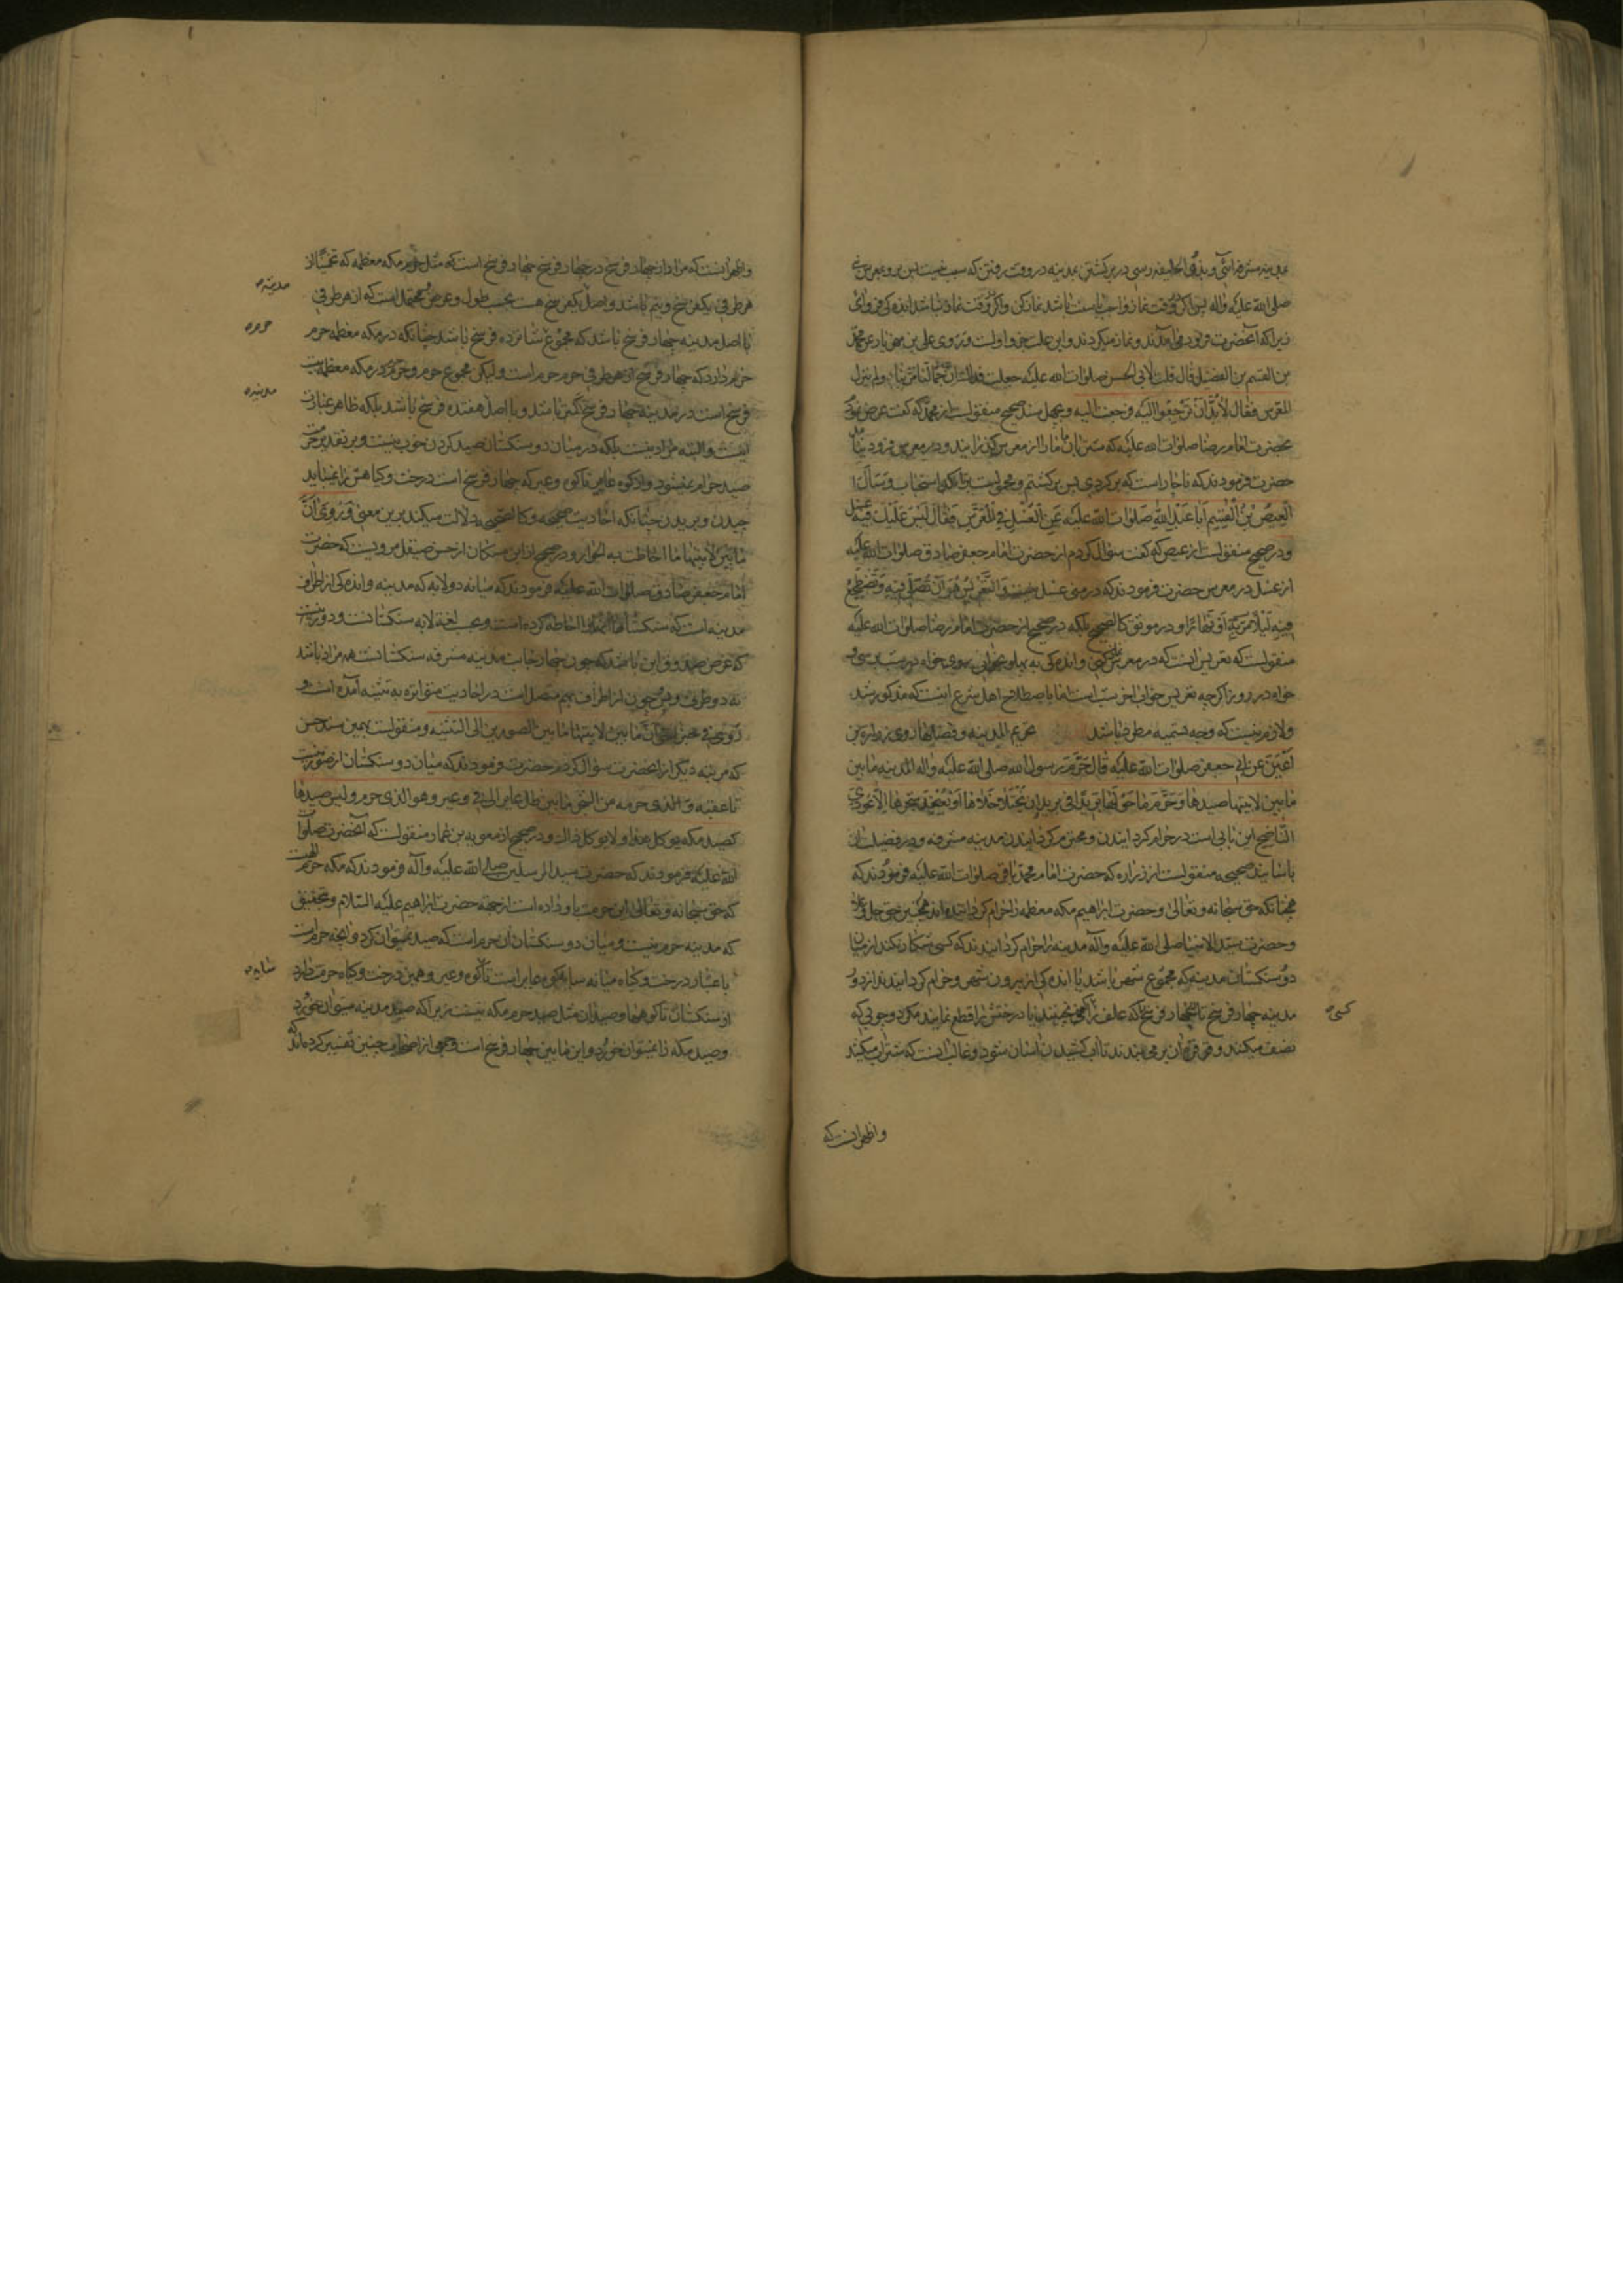 مدینه مشرفه آیی و بذی الحلیفه رسی در برگشتن بمدینه در وقت رفتن که
صلی الله علیه و آله پس اگر وقت نماز واجب یا سنت باشد نماز کن و اگر وقت نماز نباشد اندکی فرود آی
زیرا که آنحضرت فرود می آمدند و نماز میکردند و این علت جزو اولست و روی علی بن مهزیار عن محمد
بن القسم بن الفضیل قال قلت لابی الحسن صلوات الله علیه جعلت فداك ان جمالنا مر بنا و لم ینزل
المعرس فقال لا بد ان ترجعوا الیه فرجعت الیه و بسند صحیح منقولست از محمد که گفت عرض نمود
بحضرت امام رضا صلوات الله علیه که شتربان ما ما را از معرس گذرانید و در معرس فرود نیامد
حضرت فرمودند که ناچار است که برگردی پس برگشتم و محمولست بر تاکد استحباب و سأل
العیص بن القسم ابا عبد الله صلوات الله علیه عن الغسل فی المعرس فقال لیس علیك فیه غسل
و در صحیح منقولست از عیص که گفت سؤال کردم از حضرت امام جعفر صادق صلوات الله علیه
از غسل در معرس حضرت فرمودند که در غسل نیست و التعریس هو ان تصلی فیه و تضطجع
فیه لیلا مر به او نهارا و در موثق کالصحیح بلکه در صحیح از حضرت امام رضا صلوات الله علیه
منقولست که تعریس آنست که در معرس نماز کنی و اندکی به پهلو بخوابی خواه در شب برسی و
خواه در روز اگرچه تعریس خواب آخر شب است اما باصطلاح اهل شرع اینست که مذکور شد
و لازم نیست که وجه تسمیه مطرد باشد تحریم المدینه و فضلها روی زراره بن
اعین عن ابی جعفر صلوات الله علیه قال حرم رسول الله صلی الله علیه و اله المدینه ما بین
ما بین لابتیها صیدها و حرم ما حولها بریدا فی برید ان یختلا خلاها او یعضد شجرها الا عودی
الناضح این بابی است در حرام گردانیدن و محترم گردانیدن مدینه مشرفه و در فضیلت آن
باسانید صحیحه منقولست از زراره که حضرت امام محمد باقر صلوات الله علیه فرمودند که
همچنانکه حق سبحانه و تعالی و حضرت ابراهیم مکه معظمه را حرام گردانیده اند همچنین حق جل و علا
و حضرت سید الانبیا صلی الله علیه و آله مدینه را حرام گردانیدند که کسی شکار نکند از میان
دو سنگستان مدینه که مجموع شهر باشد با اندکی از بیرون شهر و حرام گردانیدند از دور
مدینه چهار فرسخ تا چهار فرسخ که علف را نچینند یا درختش را قطع نمایند مگر دو چوبی که
کسی
نصب میکنند و بر آن می بندند تا آب کشیدن آسان شود و غالب آنست که شتران میکشند
و اظهر آنست که
و اظهر آنست که مراد از چهار فرسخ در چهار فرسخ چهار فرسخ است که مثل حرم مکه معظمه که تخمینا از
هر طرفی یکفرسخ و نیم باشد و اصل یکفرسخ هست بحسب طول و عرض و محتملست که از هر طرفی
مدینه
با اصل مدینه چهار فرسخ باشد که مجموع شانزده فرسخ باشد چنانکه در مکه معظمه حرم
حرم
حرم دارد که چهار فرسخ از هر طرفی حرم حرم است و لیکن مجموع حرم و حرم حرم در مکه معظمه بیست
فرسخ است در مدینه چهار فرسخ کمتر باشد و با اصل هفده فرسخ باشد بلکه ظاهر عبارت
مدینه
اینست و البته مراد نیست بلکه در میان دو سنگستان صید کردن خوب نیست و بر تقدیر حرمت
صید حرام نمیشود و از کوه عایر تا کوه وعیر که چهار فرسخ است درخت و گیاهش را نمیباید
چیدن و بریدن چنانکه احادیث صحیحه و کالصحیحه دلالت میکند برین معنی و روی ان
ما بین لابتیها ما احاطت به الحرار و در صحیح از ابن مسکان از حسن صیقل مرویست که حضرت
امام جعفر صادق صلوات الله علیه فرمودند که میانه دو لابه که مدینه و اندکی از اطراف
مدینه است که سنگستانها آنرا احاطه کرده است و بحسب لغة لابه سنگستانست و دور نیست
که غرض صدوق این باشد که چون چهار جانب مدینه مشرفه سنگستانست همه مراد باشد
نه دو طرف و چون از اطراف بهم متصل است در احادیث متواتره به تثنیه آمده است و
روی فی خبر آخر ان ما بین لابتیها ما بین الصورین الی الثنیه و منقولست بهمین سند حسن
که مرتبه دیگر از آنحضرت سؤال کردم حضرت فرمودند که میان دو سنگستان از صورین است
تا عقبه و الذی حرمه من الشجر ما بین ظل عایر الی فی وعیر و هو الذی حرم و لیس صیدها
کصید مکه یوکل هذا و لا یوکل ذاك و در صحیح از معویه بن عمار منقولست که آنحضرت صلوات
الله علیه فرمودند که حضرت سید المرسلین صلی الله علیه و آله فرمودند که مکه حرم الهیست
که حق سبحانه و تعالی این حرمت باو داده است از جهة حضرت ابراهیم علیه السلام و بتحقیق
که مدینه حرم نیست و میان دو سنگستان آن حرم است که صید نمیتوان کرد و آنچه حرم است
باعتبار درخت و گیاه میانه سایه کوه عایر است تا کوه وعیر و همین درخت و گیاه حرمت دارد
سایه
از سنگستان تا کوهها و صید آن مثل صید حرم مکه نیست زیرا که صید مدینه میتوان خورد
و صید مکه را نمیتوان خورد و این ما بین چهار فرسخ است و جمعی از اصحاب چنین تفسیر کرده اند که